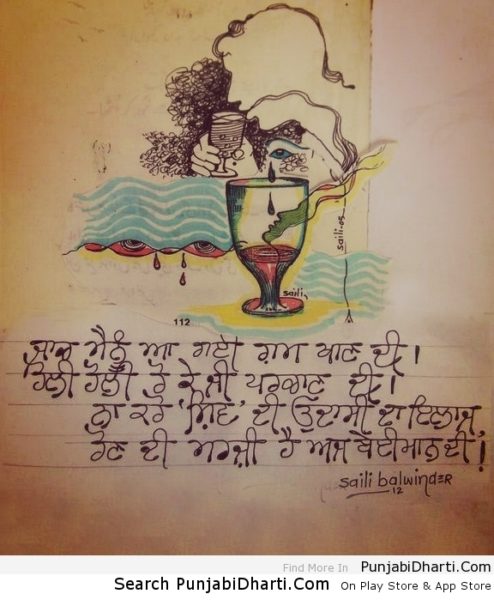 saili-05
saili
112
ਜਾਚ ਮੈਨੂੰ ਆ ਗਈ ਗ਼ਮ ਖਾਣ ਦੀ ।
ਹੌਲੀ ਹੌਲੀ ਰੋ ਕੇ ਜੀ ਪਰਚਾਣ ਦੀ ।
ਨਾ ਕਰੋ 'ਸ਼ਿਵ' ਦੀ ਉਦਾਸੀ ਦਾ ਇਲਾਜ,
ਰੋਣ ਦੀ ਮਰਜ਼ੀ ਹੈ ਅਜ ਬੇਈਮਾਨ ਦੀ !
saili balwinder
12
Find More In PunjabiDharti.Com
Search PunjabiDharti.Com On Play Store & App Store